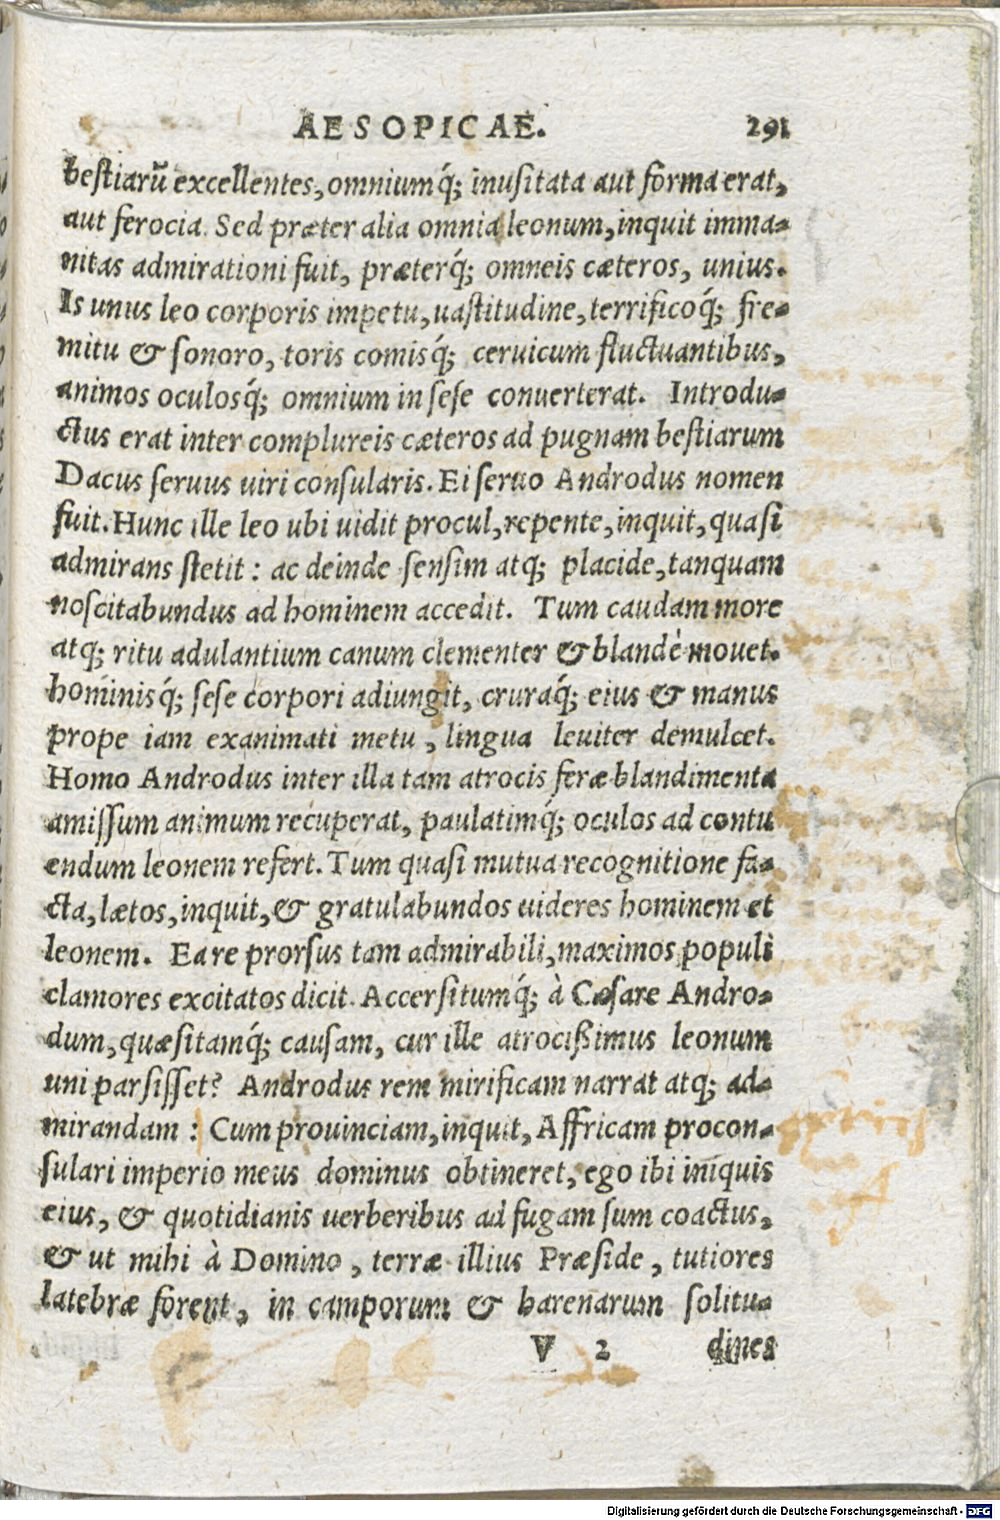 AESOPICAE. 291
bestiarũ excellentes, omniumq́; inusitata aut forma erat,
aut ferocia. Sed præter alia omnia leonum, inquit imma-
nitas admirationi fuit, præterq́; omneis cæteros, unius.
Is unus leo corporis impetu, uastitudine, terrificoq́; fre-
mitu & sonoro, toris comisq́; ceruicum fluctuantibus,
animos oculosq́; omnium in sese conuerterat. Introdu-
ctus erat inter complureis cæteros ad pugnam bestiarum
Dacus seruus uiri consularis. Ei seruo Androdus nomen
fuit. Hunc ille leo ubi uidit procul, repente, inquit, quasi
admirans stetit: ac deinde sensim atq; placide, tanquam
noscitabundus ad hominem accedit. Tum caudam more
atq; ritu adulantium canum clementer & blandè mouet.
hominisq́; sese corpori adiungit, cruraq́; eius & manus
prope iam exanimati metu, lingua leuiter demulcet.
Homo Androdus inter illa tam atrocis feræ blandimenta
amissum animum recuperat, paulatimq́; oculos ad contu
endum leonem refert. Tum quasi mutua recognitione fa-
cta, lætos, inquit, & gratulabundos uideres hominem et
leonem. Ea re prorsus tam admirabili, maximos populi
clamores excitatos dicit. Accersitumq́; à Cæsare Andro-
dum, quæsitamq́; causam, cur ille atrocißimus leonum
uni parsisset? Androdus rem mirificam narrat atq; ad-
mirandam: Cum prouinciam, inquit, Affricam procon-
sulari imperio meus dominus obtineret, ego ibi iniquis
eius, & quotidianis uerberibus ad fugam sum coactus,
& ut mihi à Domino, terræ illius Præside, tutiores
latebræ forent, in camporum & harenarum solitu-
V 2 dines
Digitalisierung gefördert durch die Deutsche Forschungsgemeinschaft - DFG